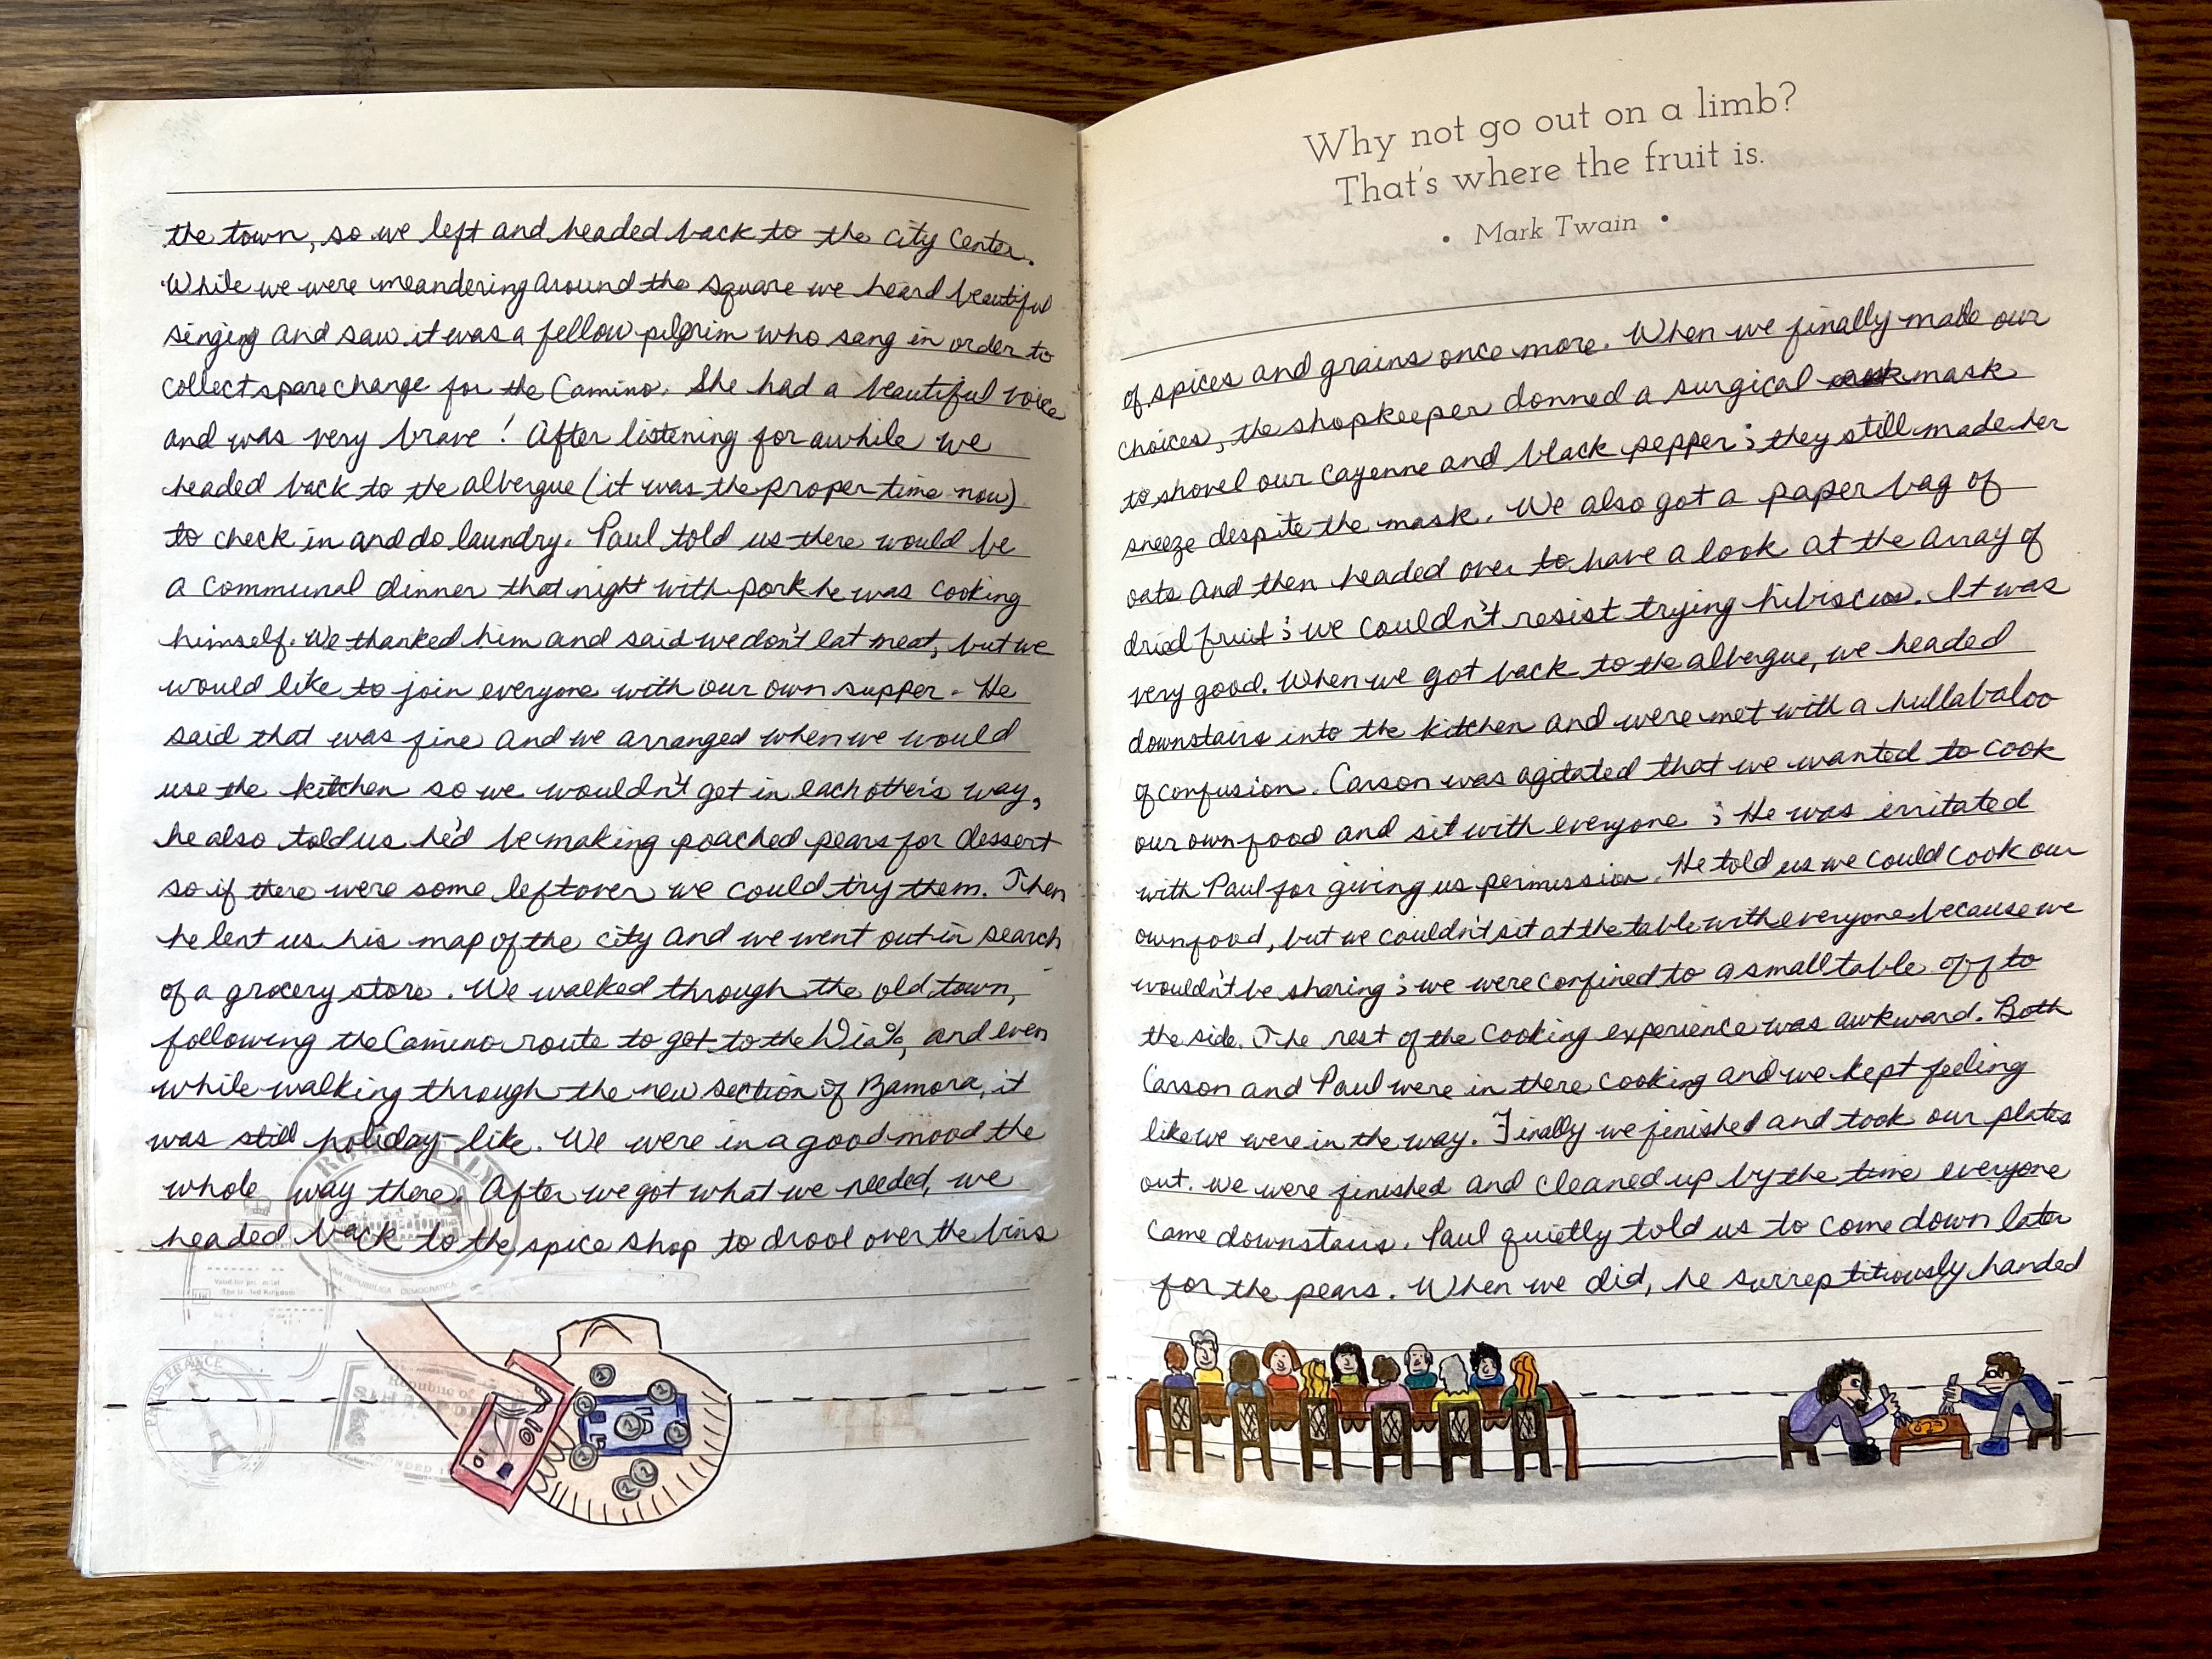 the town, so we left and headed back to the city center.
While we were meandering around the square we heard beautiful
singing and saw it was a fellow pilgrim who sang in order to
collect spare change for the Camino. She had a beautiful voice
and was very brave! After listening for awhile we
headed back to the albergue (it was the proper time now)
to check in and do laundry. Paul told us there would be
a communal dinner that night with pork he was cooking
himself. We thanked him and said we don't eat meat, but we
would like to join everyone with our own supper. He
said that was fine and we arranged when we would
use the kitchen so we wouldn't get in eachother's way,
he also told us he'd be making poached pears for dessert
so if there were some leftover we could try them. Then
he lent us his map of the city and we went out in search
of a grocery store. We walked through the old town,
following the Camino route to get to the Dia%, and even
while walking through the new section of Zamora, it
was still holiday-like. We were in a good mood the
whole way there. After we got what we needed, we
headed back to the spice shop to drool over the bins
The United Kingdom
REPUBBLICA DEMOCRATICA
PARIS, FRANCE
Republic of
Why not go out on a limb?
That's where the fruit is.
• Mark Twain •
of spices and grains once more. When we finally made our
choices, the shopkeeper donned a surgical mask
to shovel our cayenne and black pepper; they still made her
sneeze despite the mask. We also got a paper bag of
oats and then headed over to have a look at the array of
dried fruit; we couldn't resist trying hibiscus. It was
very good. When we got back to the albergue, we headed
downstairs into the kitchen and were met with a hullabaloo
of confusion. Carson was agitated that we wanted to cook
our own food and sit with everyone; He was irritated
with Paul for giving us permission. He told us we could cook our
own food, but we couldn't sit at the table with everyone because we
wouldn't be sharing; we were confined to a small table off to
the side. The rest of the cooking experience was awkward. Both
Carson and Paul were in there cooking and we kept feeling
like we were in the way. Finally we finished and took our plates
out. We were finished and cleaned up by the time everyone
came downstairs. Paul quietly told us to come down later
for the pears. When we did, he surreptitiously handed